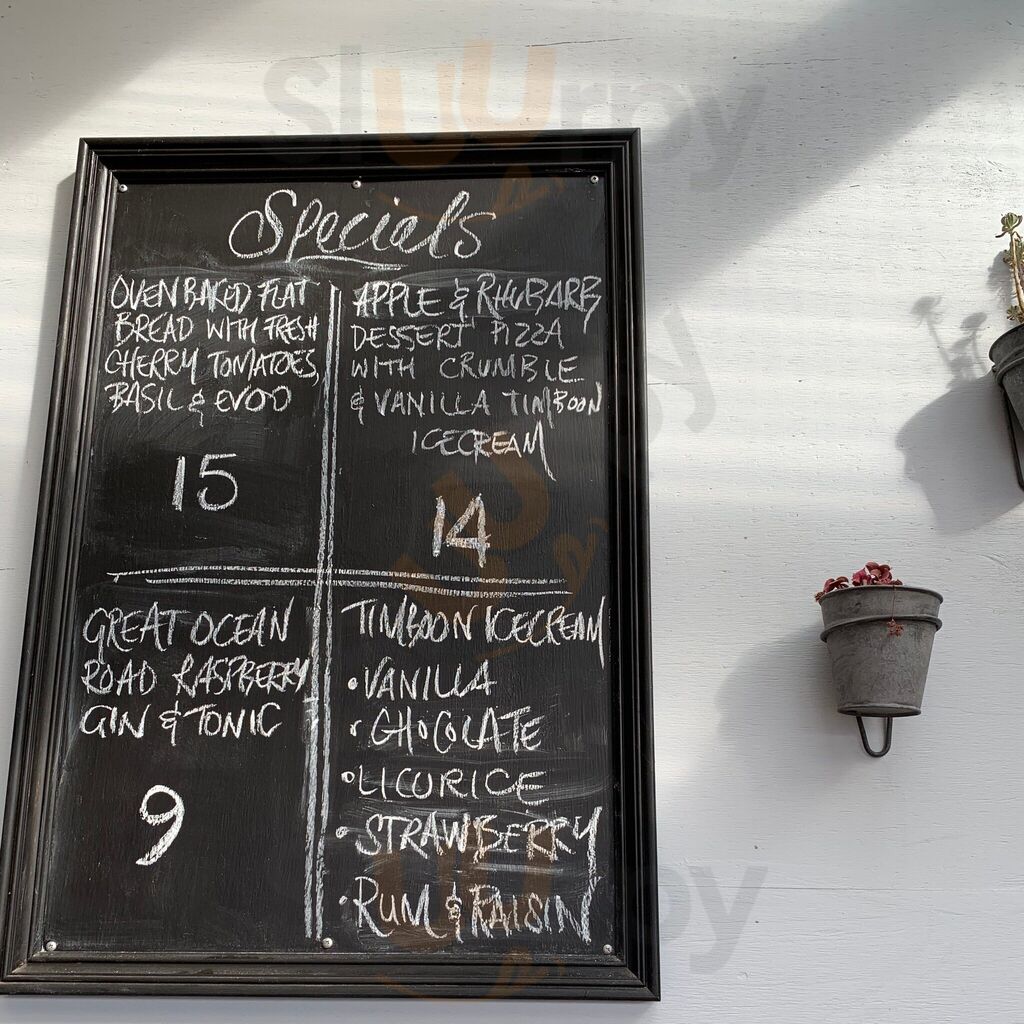 Specials
OVEN BAKED FLAT
BREAD WITH FRESH
CHERRY TOMATOES,
BASIL & EVOO
15
APPLE & RHUBARB
DESSERT PIZZA
WITH CRUMBLE
& VANILLA TIMBOON
ICECREAM
14
GREAT OCEAN
ROAD RASPBERRY
GIN & TONIC
9
TIMBOON ICECREAM
• VANILLA
• CHOCOLATE
• LICORICE
• STRAWBERRY
• RUM & RAISIN
slUUrpy